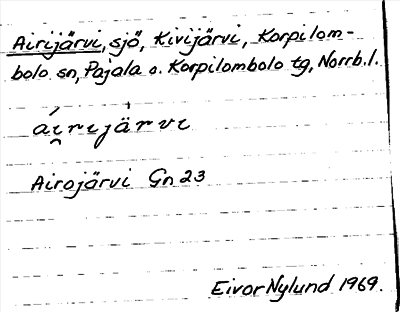 Airijärvi, sjö, Kivijärvi, Korpilom-
bolo sn, Pajala o. Korpilombolo tg, Norrb. l.
ái̯rijärvi
Airojärvi Gn 23
Eivor Nylund 1969.